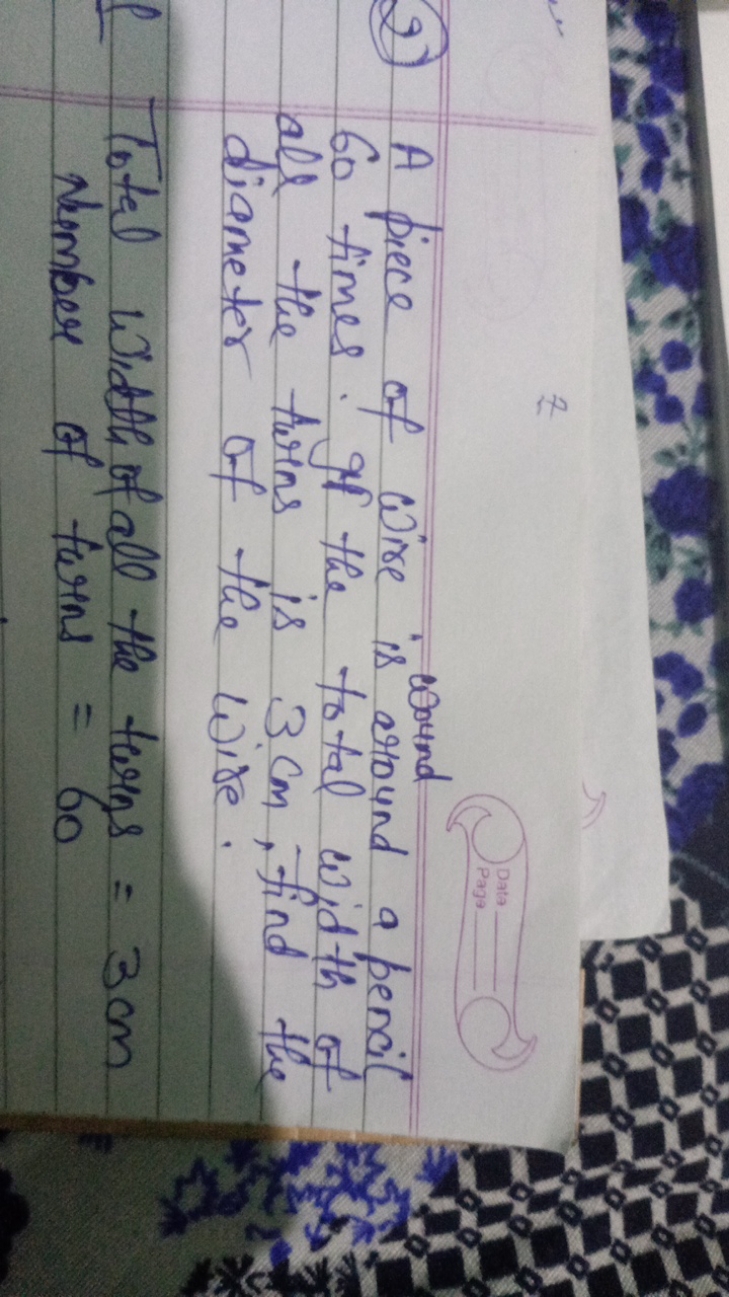 2
Data
Page
2) A piece of wire is wound around a pencil
60 times. If the total width of
all the turns is 3 cm, find the
diameter of the wire.
Total width of all the turns = 3 cm
Number of turns = 60